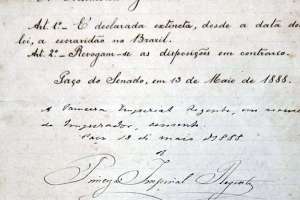 Art. 1º- E' declarada extincta, desde a data de
lei, a escravidão no Brazil.
Art. 2º- Revogam-se as disposições em contrario.
Paço do Senado, em 13 de Maio de 1888.
A Princeza Imperial Regente, em
Imperador,
Paço 13 de maio de 1888
Princeza Imperial Regente